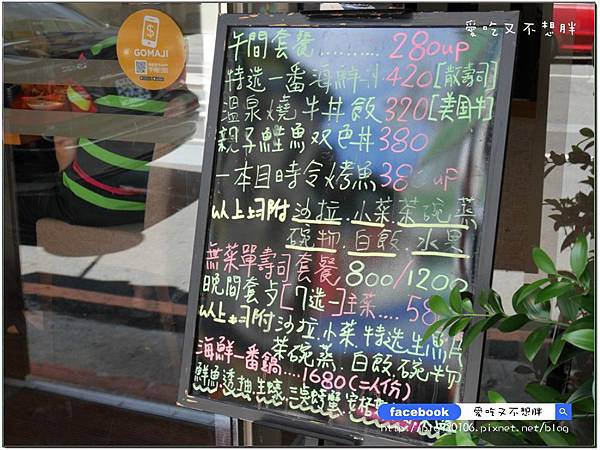 愛吃又不想胖
GOMAJI
午間套餐.......... 280up
特选一番海鮮丼 420 [散壽司]
溫泉燒牛丼飯 320 [美国牛]
親子鮭魚双色丼 380
一本目時令烤魚 380up
以上均附 沙拉.小菜.茶碗蒸
碗物.白飯.水果
無菜單壽司套餐 800/1200
晚間套歺[7选一]主菜.... 58
以上均附 沙拉.小菜.特选生魚片
茶碗蒸.白飯.碗物
海鮮一番鍋....1680(二人份)
鮮魚.透抽.生蠔.三点螃蟹.安格
facebook 愛吃又不想胖
pixnet.net/blog